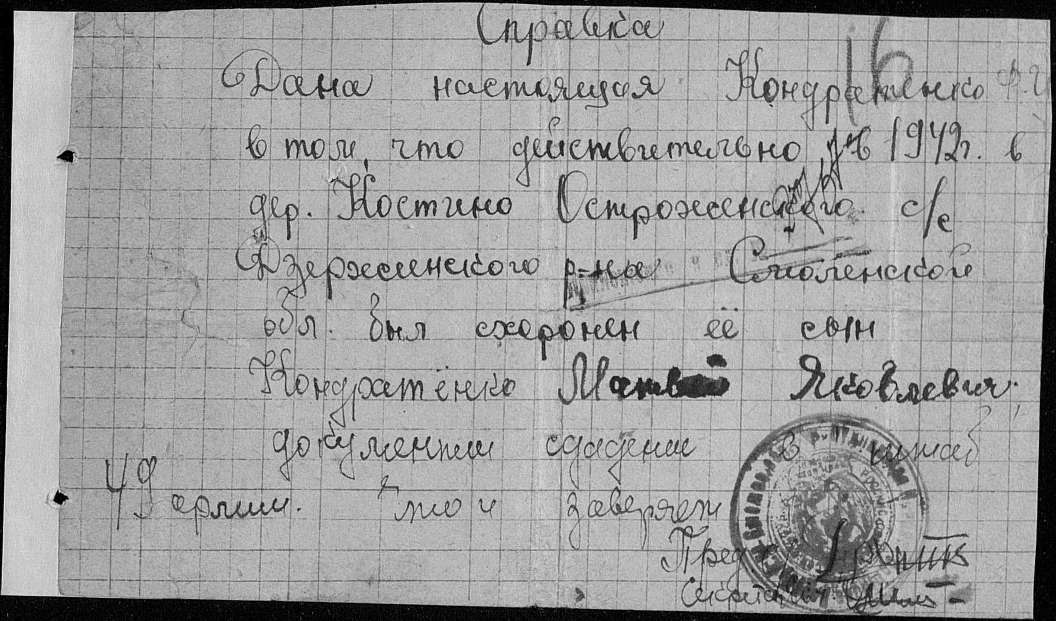 Справка
16
Дана настоящая Кондратенко
в том, что действительно в 1942г. в
дер. Костино Остроженского с/с
Дзержинского р-на Смоленской
обл. был схоронен её сын
Кондратёнко Матвей Яковлевич.
документы сдадены в штаб
49 армии. что и заверяем
Пред